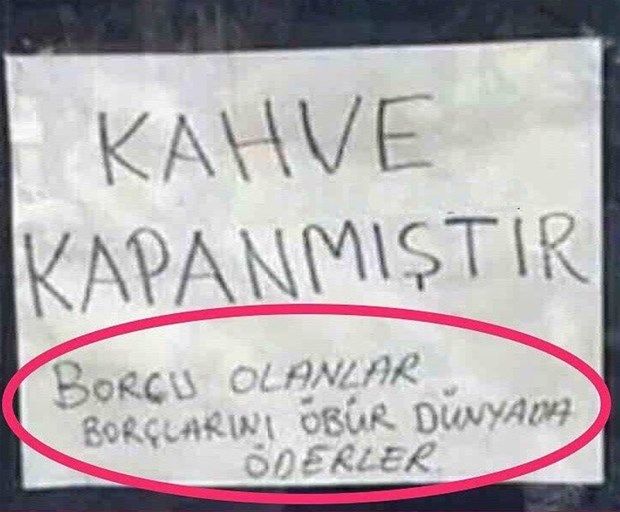 KAHVE
KAPANMIŞTIR
BORCU OLANLAR
BORÇLARINI ÖBÜR DÜNYADA
ÖDERLER.